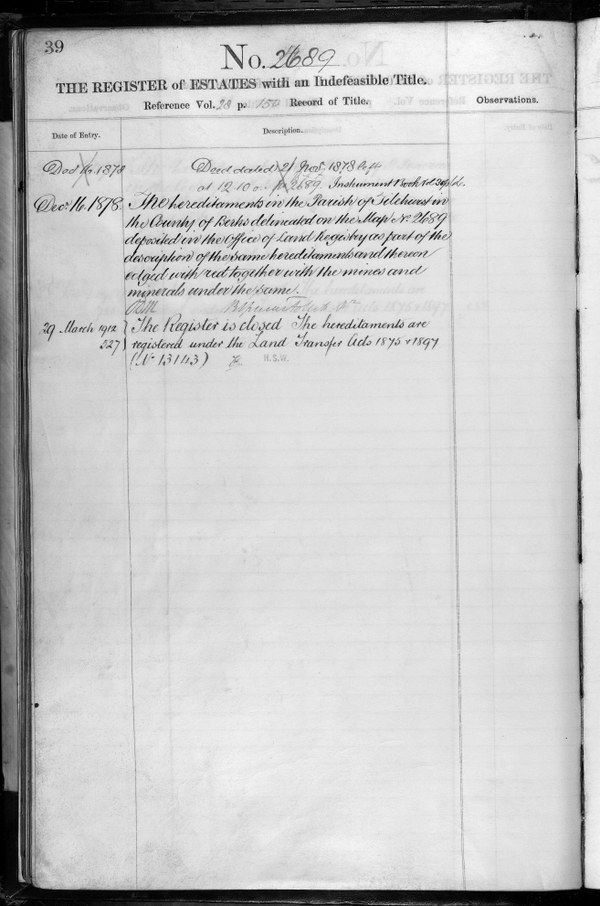 39
No. 2689
THE REGISTER of ESTATES with an Indefeasible Title.
Reference Vol. 28 p. 150 Record of Title.
Observations.
Date of Entry.
Description.
Decr 16. 1878
Deed dated 21 Novr 1878 left
at 12.10 2689. Instrument Book
Decr 16. 1878.
The hereditaments in the Parish of Tilehurst in
the County of Berks delineated on the Map No 2689
deposited in the Office of Land Registry as part of the
description of the same hereditaments and thereon
edged with red together with the mines and
minerals under the same.
29 March 1912
527
The Register is closed The hereditaments are
registered under the Land Transfer Acts 1875 & 1897
(No 13143) H.S.W.